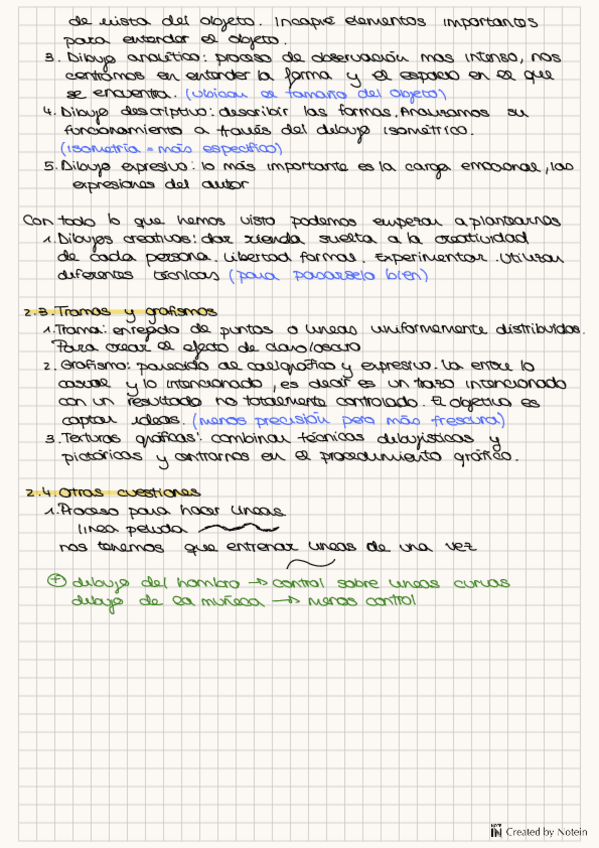 de vista del objeto. Incapié elementos importantes
para entender el objeto.
3. Dibujo analítico: proceso de observación mas intenso, nos
centramos en entender la forma y el espacio en el que
se encuentra. (ubicau el tamaño del objeto)
4. Dibujo descriptivo: describir las formas. Analizamos su
funcionamiento a través del dibujo isométrico.
(isometría = más específico)
5. Dibujo expresivo: lo más importante es la carga emocional, las
expresiones del autor
Con todo lo que hemos visto podemos empezar a plantearnos
1. Dibujos creativos: dar rienda suelta a la creatividad
de cada persona. Libertad formas. Experimentar. Utilizar
diferentes técnicas (para pasarselo bien)
2.3. Tramas y grafismos
1. Trama: enrejado de puntos o lineas uniformemente distribuidos.
Para crear el efecto de claroloscuro
2. Grafismo: parecido al caligráfico y expresivo. Va entre lo
casual y lo intencionado, es decir es un trazo intencionado
con un resultado no totalmente controlado. El objetivo es
captar ideas. (menos precisión pero más frescura)
3. Texturas gráficas: combinar técnicas dibujísticas y
pictóricas y centrarnos en el procedimiento gráfico.
2.4. Otras cuestiones
1. Proceso para hacer lineas
linea peluda
nos tenemos que entrenar lineas de una vez
+ dibujo del hombro → control sobre lineas curvas
dibujo de la muñeca → menos control
NOTE IN Created by Notein